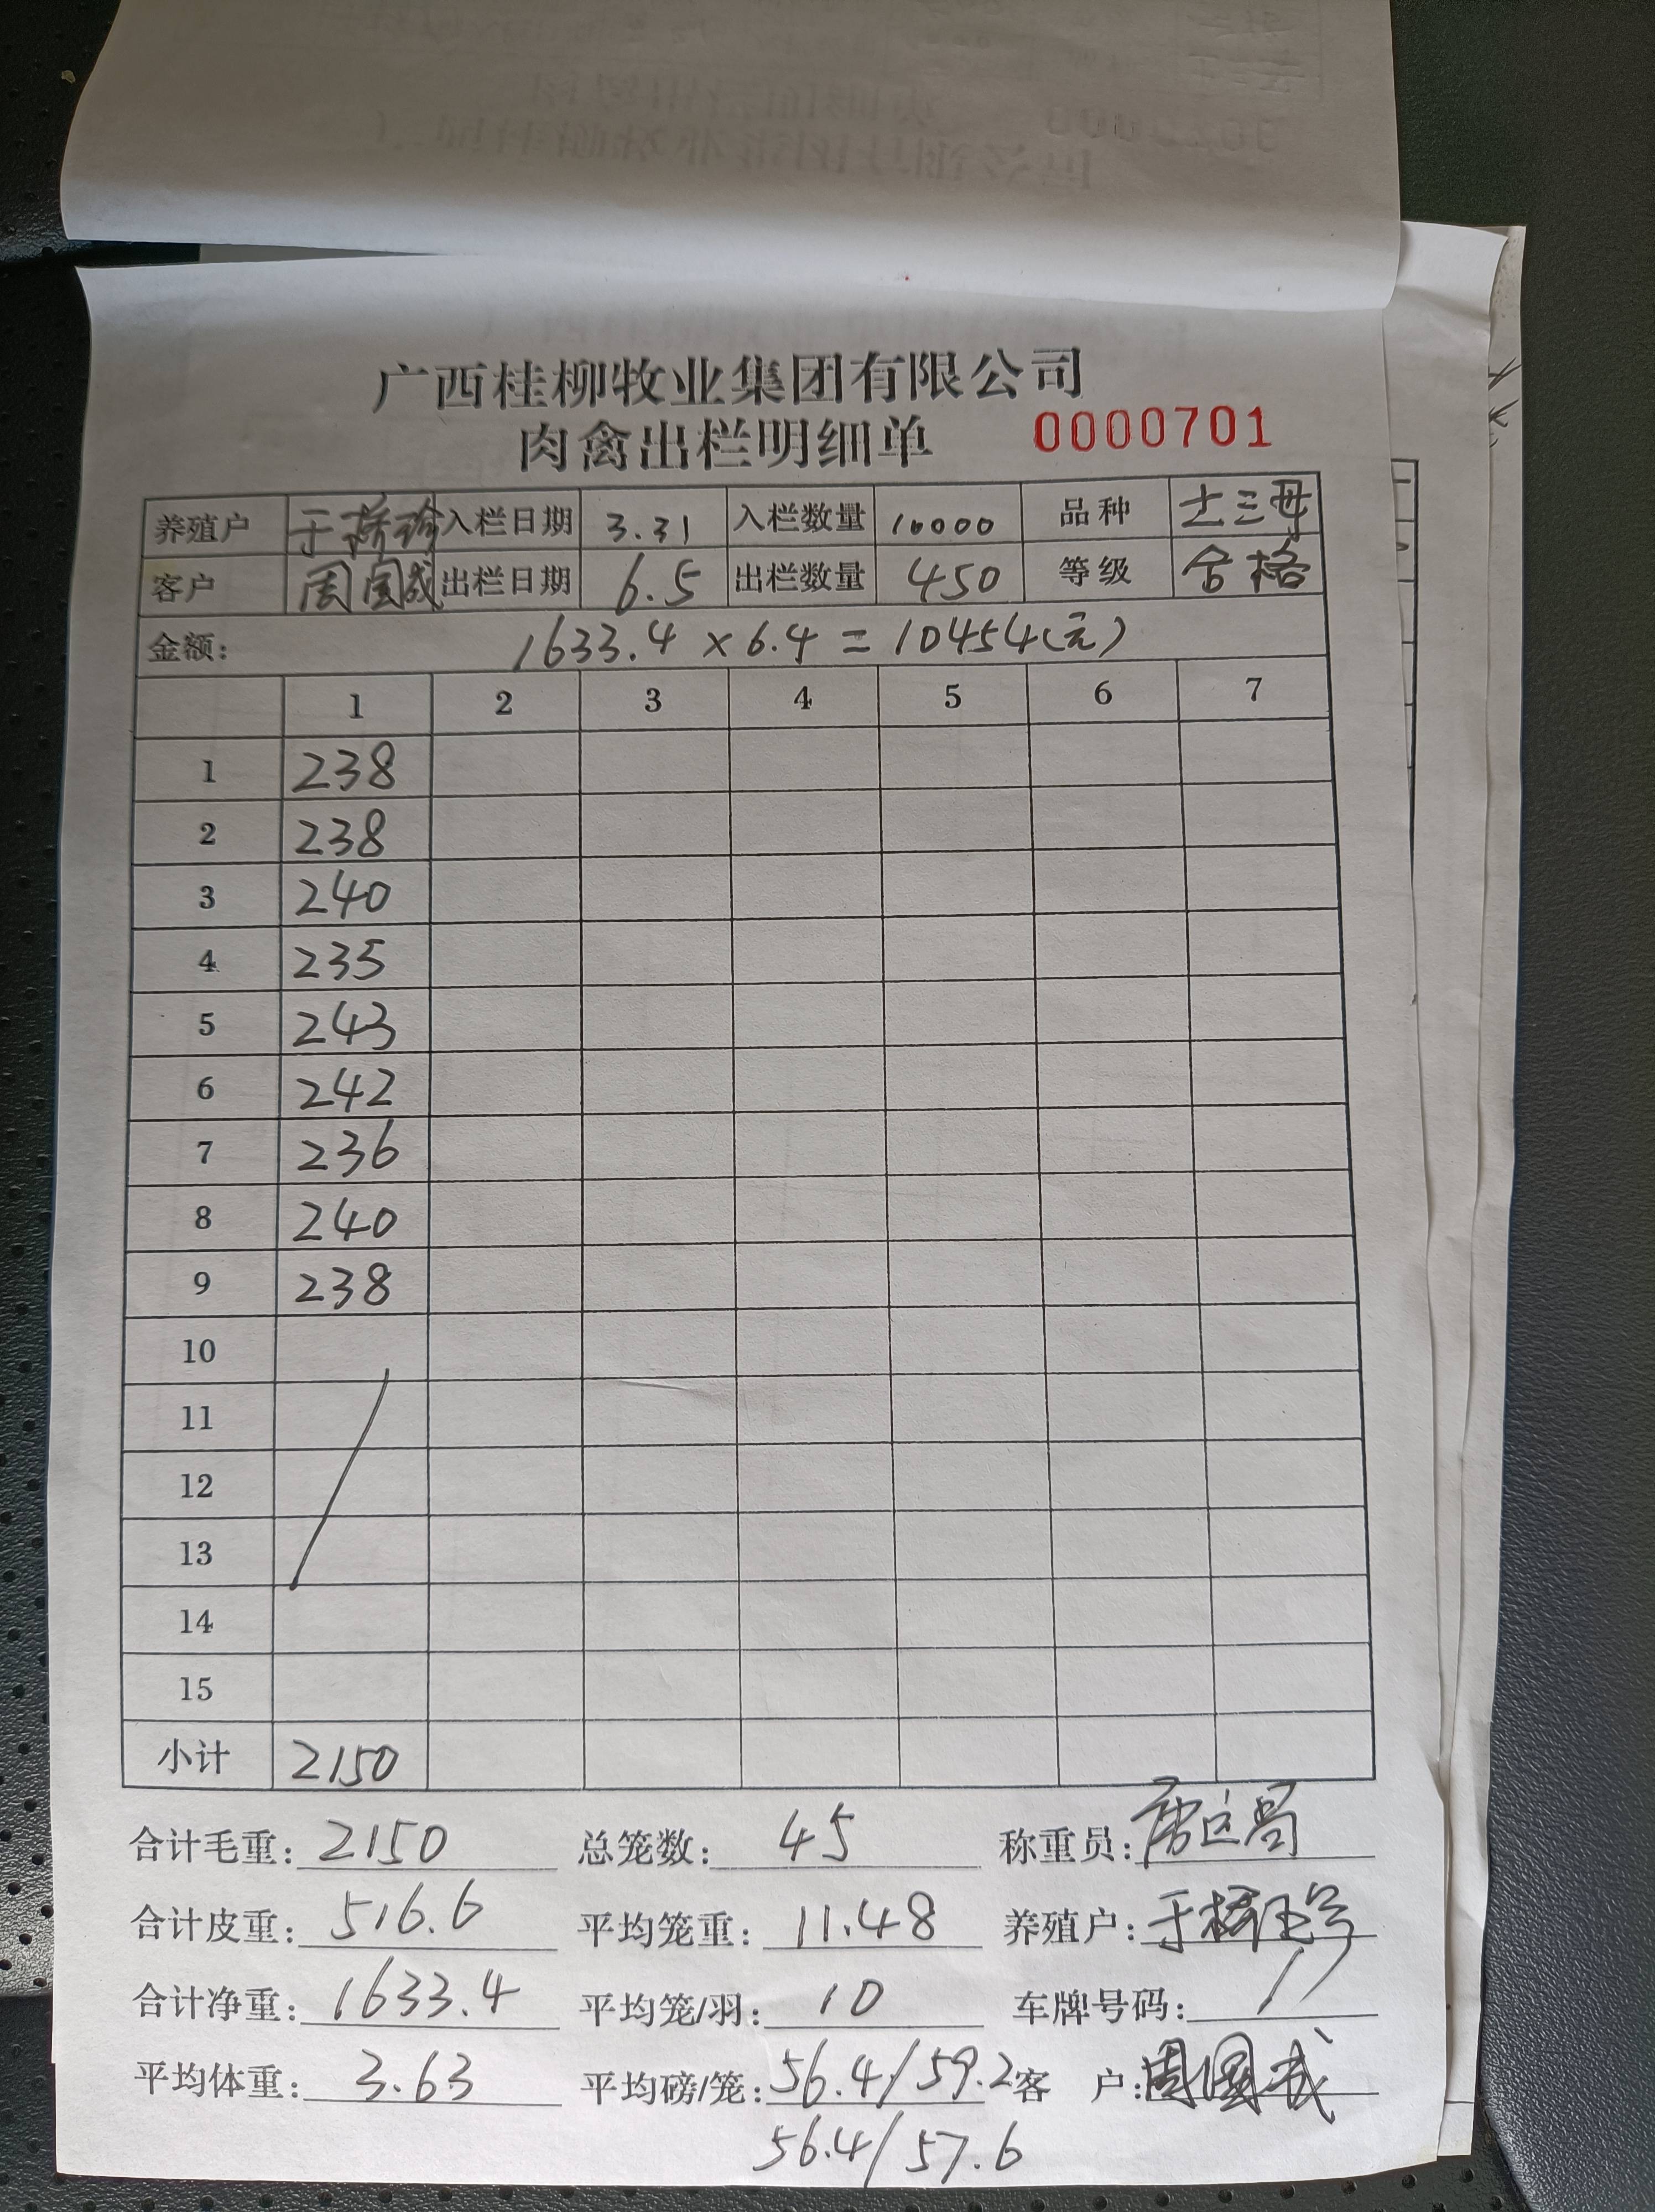 广西桂柳牧业集团有限公司
肉禽出栏明细单 0000701
养殖户 于 入栏日期 3.31 入栏数量 10000 品种 土三母
客户 周国成 出栏日期 6.5 出栏数量 450 等级 合格
金额: 1633.4 × 6.4 = 10454(元)
1 2 3 4 5 6 7
1 238
2 238
3 240
4 235
5 243
6 242
7 236
8 240
9 238
10
11
12
13
14
15
小计 2150
合计毛重: 2150 总笼数: 45 称重员:
合计皮重: 516.6 平均笼重: 11.48 养殖户: 于
合计净重: 1633.4 平均笼/羽: 10 车牌号码:
平均体重: 3.63 平均磅/笼: 56.4/59.2 客 户: 周国成
56.4/57.6